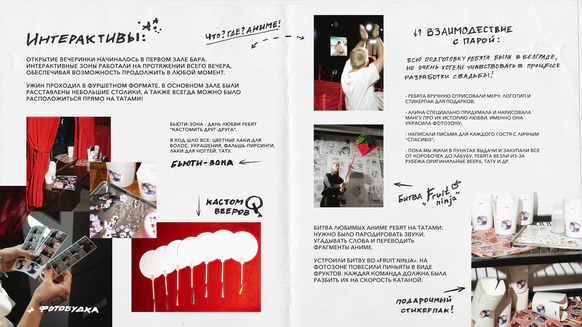 ИНТЕРАКТИВЫ:
ОТКРЫТИЕ ВЕЧЕРИНКИ НАЧИНАЛОСЬ В ПЕРВОМ ЗАЛЕ БАРА.
ИНТЕРАКТИВНЫЕ ЗОНЫ РАБОТАЛИ НА ПРОТЯЖЕНИИ ВСЕГО ВЕЧЕРА,
ОБЕСПЕЧИВАЯ ВОЗМОЖНОСТЬ ПРОДОЛЖИТЬ В ЛЮБОЙ МОМЕНТ.
УЖИН ПРОХОДИЛ В ФУРШЕТНОМ ФОРМАТЕ. В ОСНОВНОМ ЗАЛЕ БЫЛИ
РАССТАВЛЕНЫ НЕБОЛЬШИЕ СТОЛИКИ, А ТАКЖЕ ВСЕГДА МОЖНО БЫЛО
РАСПОЛОЖИТЬСЯ ПРЯМО НА ТАТАМИ!
БЬЮТИ-ЗОНА - ДАНЬ ЛЮБВИ РЕБЯТ
"КАСТОМИТЬ ДРУГ-ДРУГА".
В ХОД ШЛО ВСЕ: ЦВЕТНЫЕ ЛАКИ ДЛЯ
ВОЛОС, УКРАШЕНИЯ, ФАЛЬШЬ-ПИРСИНГИ,
ЛАКИ ДЛЯ НОГТЕЙ, ТАТУ.
БЬЮТИ-ЗОНА
КАСТОМ
ВЕЕРОВ
+ ФОТОБУДКА
ЧТО? ГДЕ? АНИМЕ!
БИТВА
„Fruit
ninja"
БИТВА ЛЮБИМЫХ АНИМЕ РЕБЯТ НА ТАТАМИ:
НУЖНО БЫЛО ПАРОДИРОВАТЬ ЗВУКИ,
УГАДЫВАТЬ СЛОВА И ПЕРЕВОДИТЬ
ФРАГМЕНТЫ АНИМЕ.
УСТРОИЛИ БИТВУ ВО «FRUIT NINJA». НА
ФОТОЗОНЕ ПОВЕСИЛИ ПИНЬЯТЫ В ВИДЕ
ФРУКТОВ. КАЖДАЯ КОМАНДА ДОЛЖНА БЫЛА
РАЗБИТЬ ИХ НА СКОРОСТЬ КАТАНОЙ.
ВЗАИМОДЕСТВИЕ
С ПАРОЙ:
ВСЮ ПОДГОТОВКУ РЕБЯТА БЫЛИ В БЕЛГРАДЕ,
НО ОЧЕНЬ ХОТЕЛИ УЧАВСТВОВАТЬ В ПРОЦЕССЕ
РАЗРАБОТКИ СВАДЬБЫ!
- РЕБЯТА ВРУЧНУЮ ОТРИСОВАЛИ МЕРЧ: ЛОГОТИП И
СТИКЕРПАК ДЛЯ ПОДАРКОВ;
- АЛИНА СПЕЦИАЛЬНО ПРИДУМАЛА И НАРИСОВАЛА
МАНГУ ПРО ИХ ИСТОРИЮ ЛЮБВИ. ИМЕННО ОНА
УКРАСИЛА ФОТОЗОНУ;
- НАПИСАЛИ ПИСЬМА ДЛЯ КАЖДОГО ГОСТЯ С ЛИЧНЫМ
"СПАСИБО";
- ПОКА МЫ ЖИЛИ В ПУНКТАХ ВЫДАЧИ И ЗАКУПАЛИ ВСЕ
ОТ КОРОБОЧЕК ДО ЛАБУБУ, РЕБЯТА ВЕЗЛИ ИЗ-ЗА
РУБЕЖА ОРИГИНАЛЬНЫЕ ВЕЕРА, ТАТУ И ДР.
ПОДАРОЧНЫЙ
СТИКЕРПАК!